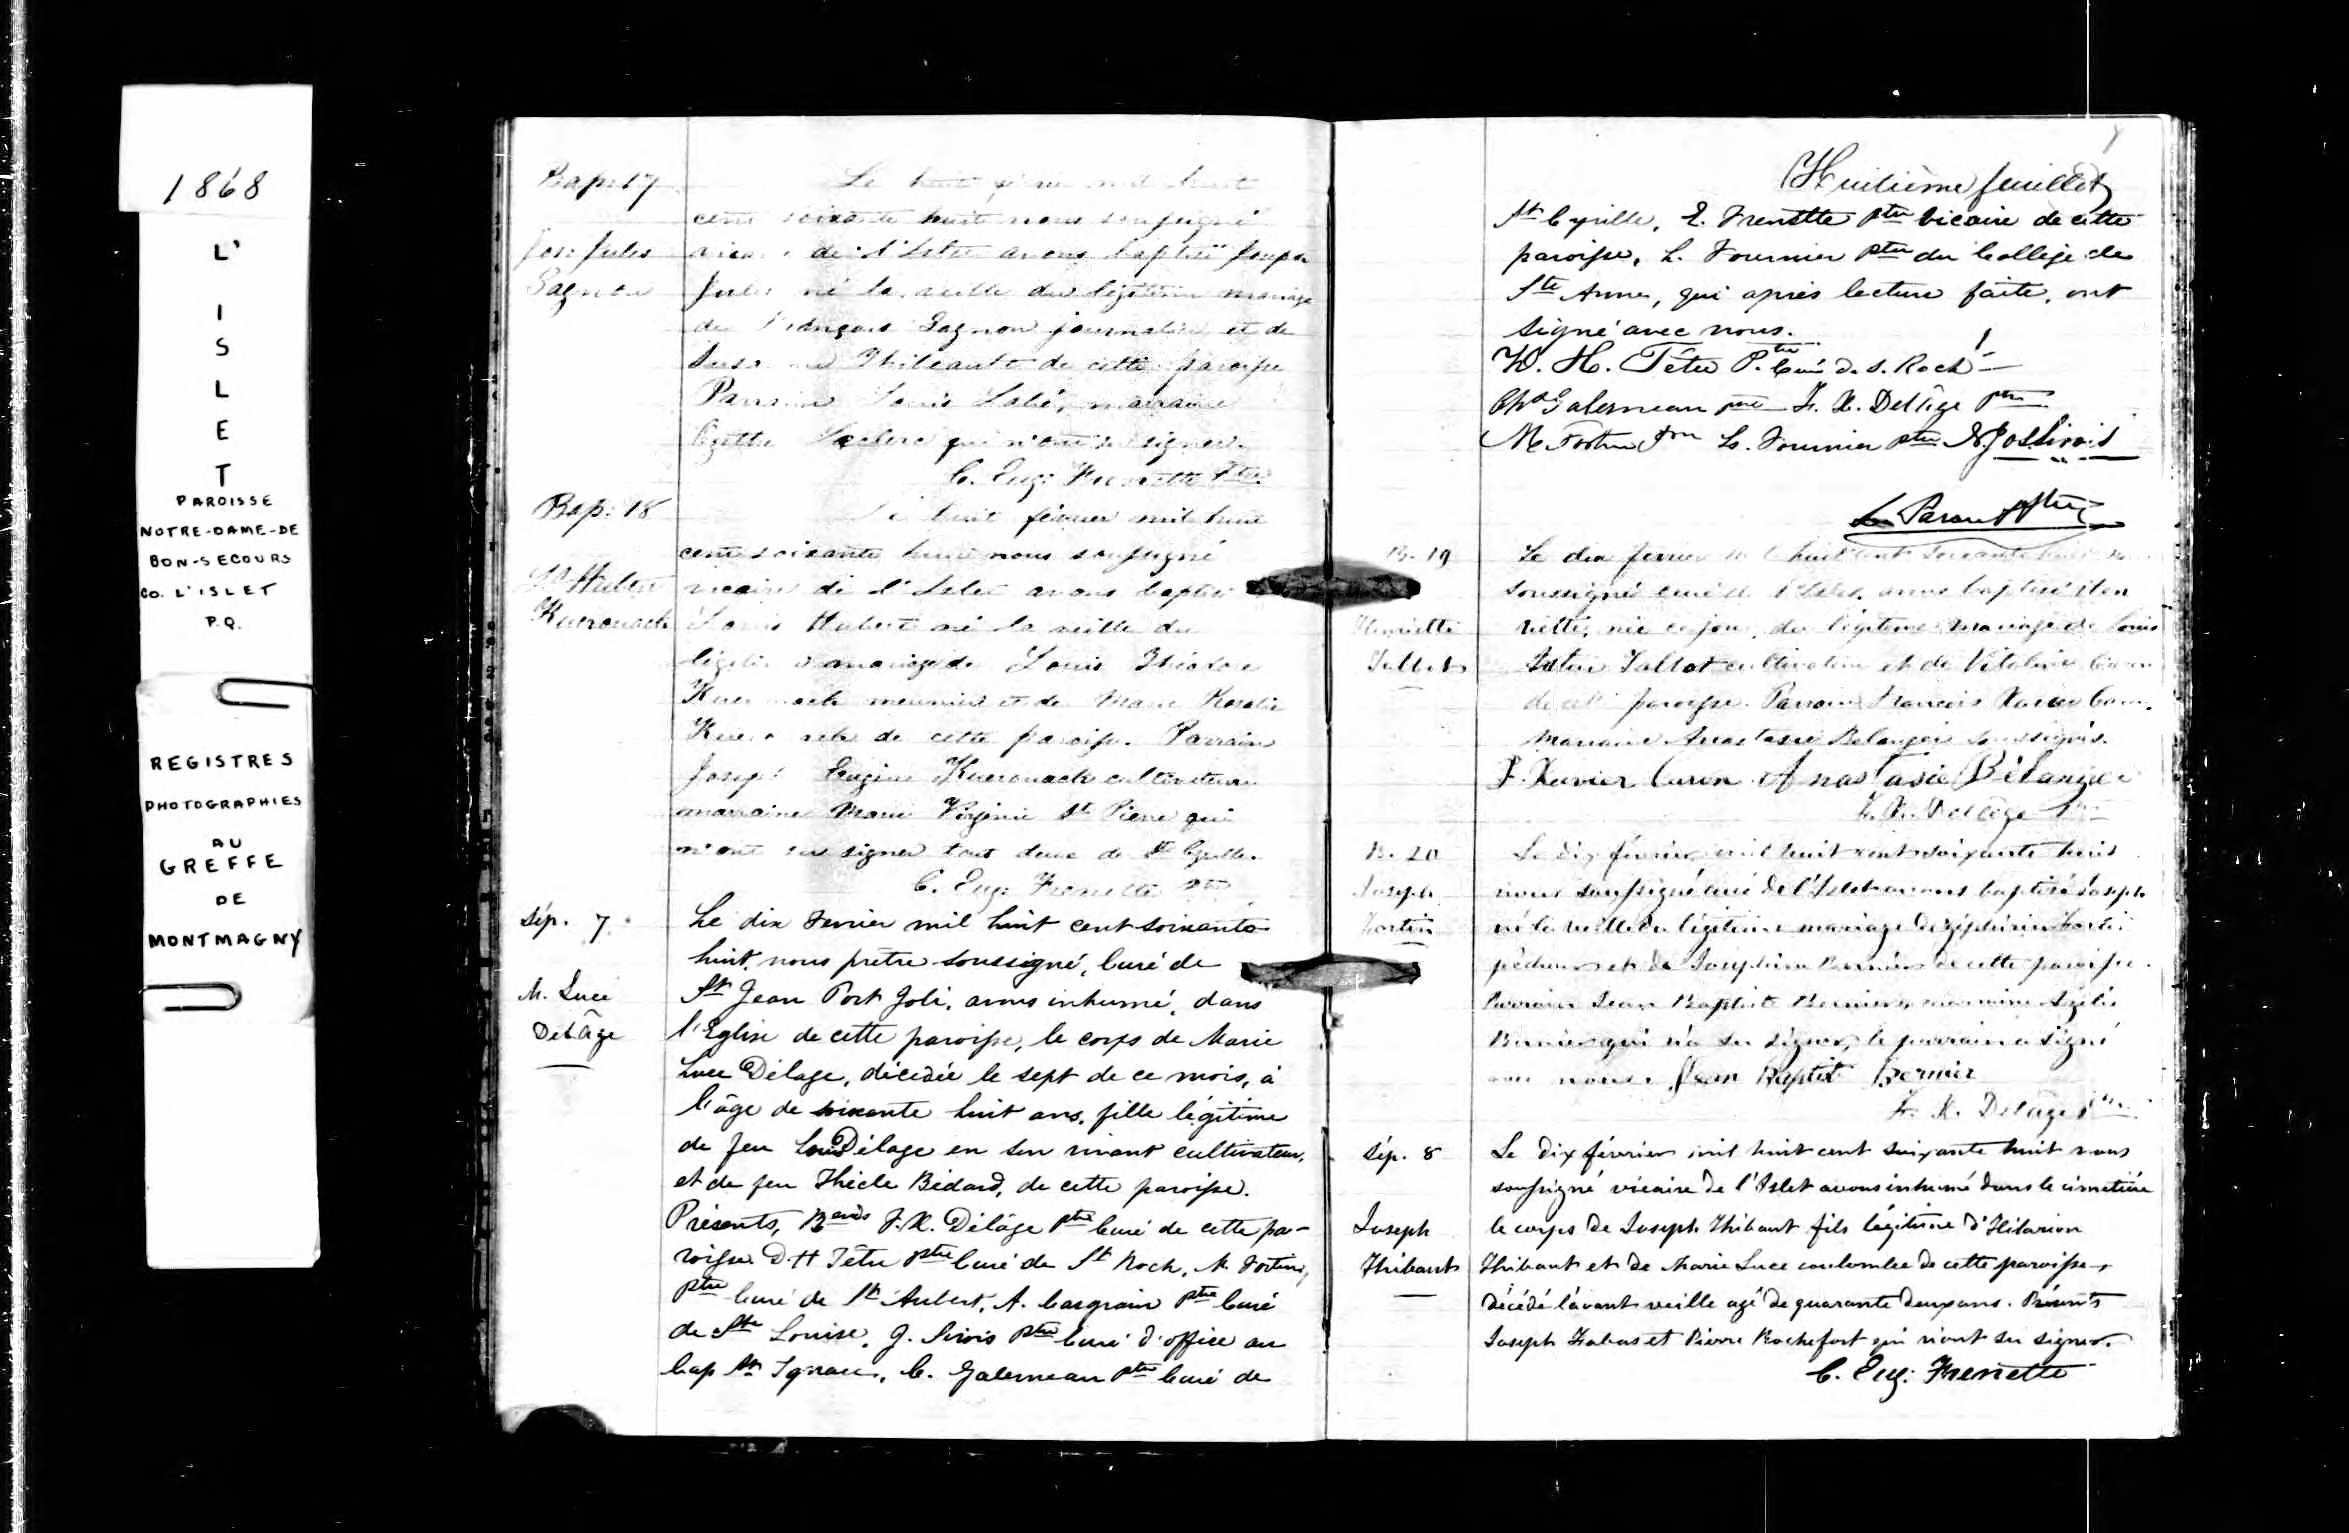 1868
L'
I
S
L
E
T
PAROISSE
NOTRE-DAME-DE
BON-SECOURS
CO. L'ISLET
P.Q.
REGISTRES
PHOTOGRAPHIES
AU
GREFFE
DE
MONTMAGNY
Bap: 17
Le huit mil huit
cent soixante huit nous soussigné
Jos: Jules
de l'Islet avons baptisé Joseph
Gagnon
Jules né la veille du légitime mariage
de François Gagnon journalier et de
Thibeault de cette paroisse
Parrain Louis Labé, marraine
Leclerc qui n'ont su signer.
C. Eug: Frenette Ptre
Bap: 18
Le huit février mil huit
cent soixante huit nous soussigné
Ls Hubert
vicaire de l'Islet avons baptisé
Kuerouack
Louis Hubert né la veille du
légitime mariage de Louis Théodore
Kuerouack meunier et de Marie Rosalie
de cette paroisse. Parrain
Joseph Eugène Kuerouack cultivateur
marraine Marie Virginie St Pierre qui
n'ont su signer tout deux de St Cyrille.
C. Eug: Frenette Ptre
Sép. 7
Le dix Fevrier mil huit cent soixante
huit, nous prêtre soussigné, Curé de
M. Luce
St Jean Port Joli, avons inhumé, dans
Delâge
l'Eglise de cette paroisse, le corps de Marie
Luce Délage, décédée le sept de ce mois, à
l'âge de soixante huit ans, fille légitime
de feu Louis Délage en son vivant cultivateur,
et de feu Thècle Bédard, de cette paroisse.
Présents, Rends F.X. Délâge Ptre Curé de cette pa-
roisse D. H Têtu Ptre Curé de St Roch, M. Fortin,
Ptre Curé de St Aubert, A. Casgrain Ptre Curé
de Ste Louise, J. Sirois Ptre Curé d'office au
Cap St Ignace, C. Galerneau Ptre Curé de
Huitième feuillet
St Cyrille, E. Frenette Ptre Vicaire de cette
paroisse, L. Fournier Ptre du Collège de
Ste Anne, qui après lecture faite, ont
signé avec nous.
D. H. Têtu Ptre Curé d. S. Roch
Chs Galerneau ptre F. X. Delâge ptre
M Fortin Ptre L. Fournier ptre N. Jos Sirois
L. Parant Ptre
B. 19
Le dix fevrier mil huit cent soixante huit
soussigné curé de l'Islet, avons baptisé Hen
Henriette
riette, née ce jour, du légitime mariage de Louis
Talbot
Talbot cultivateur et de Vitaline Caron
de cette paroisse. Parrain François Xavier Caron,
marraine Anastasie Belanger soussignés.
F. Xavier Caron Anastasie Bélanger
F. X. Delâge Ptre
B. 20
Le dix février mil huit cent soixante huit
Joseph
nous soussigné curé de l'Islet avons baptisé Joseph
Fortin
né la veille du légitime mariage de Zéphirin Fortin
pêcheur et de Joséphine Bernier de cette paroisse.
Parrain Jean Baptiste Bernier, marraine
Bernier qui n'a su signer, le parrain a signé
avec nous. Jean Baptist Bernier
F. X. Delâge Ptre
Sép. 8
Le dix février mil huit cent soixante huit nous
soussigné vicaire de l'Islet avons inhumé dans le cimetière
Joseph
le corps de Joseph Thibaut fils légitime d'Hilarion
Thibaut
Thibaut et de Marie Luce coulombe de cette paroisse,
décédé l'avant veille agé de quarante deux ans. Présents
Joseph et Pierre Rochefort qui n'ont su signer.
C. Eug: Frenette